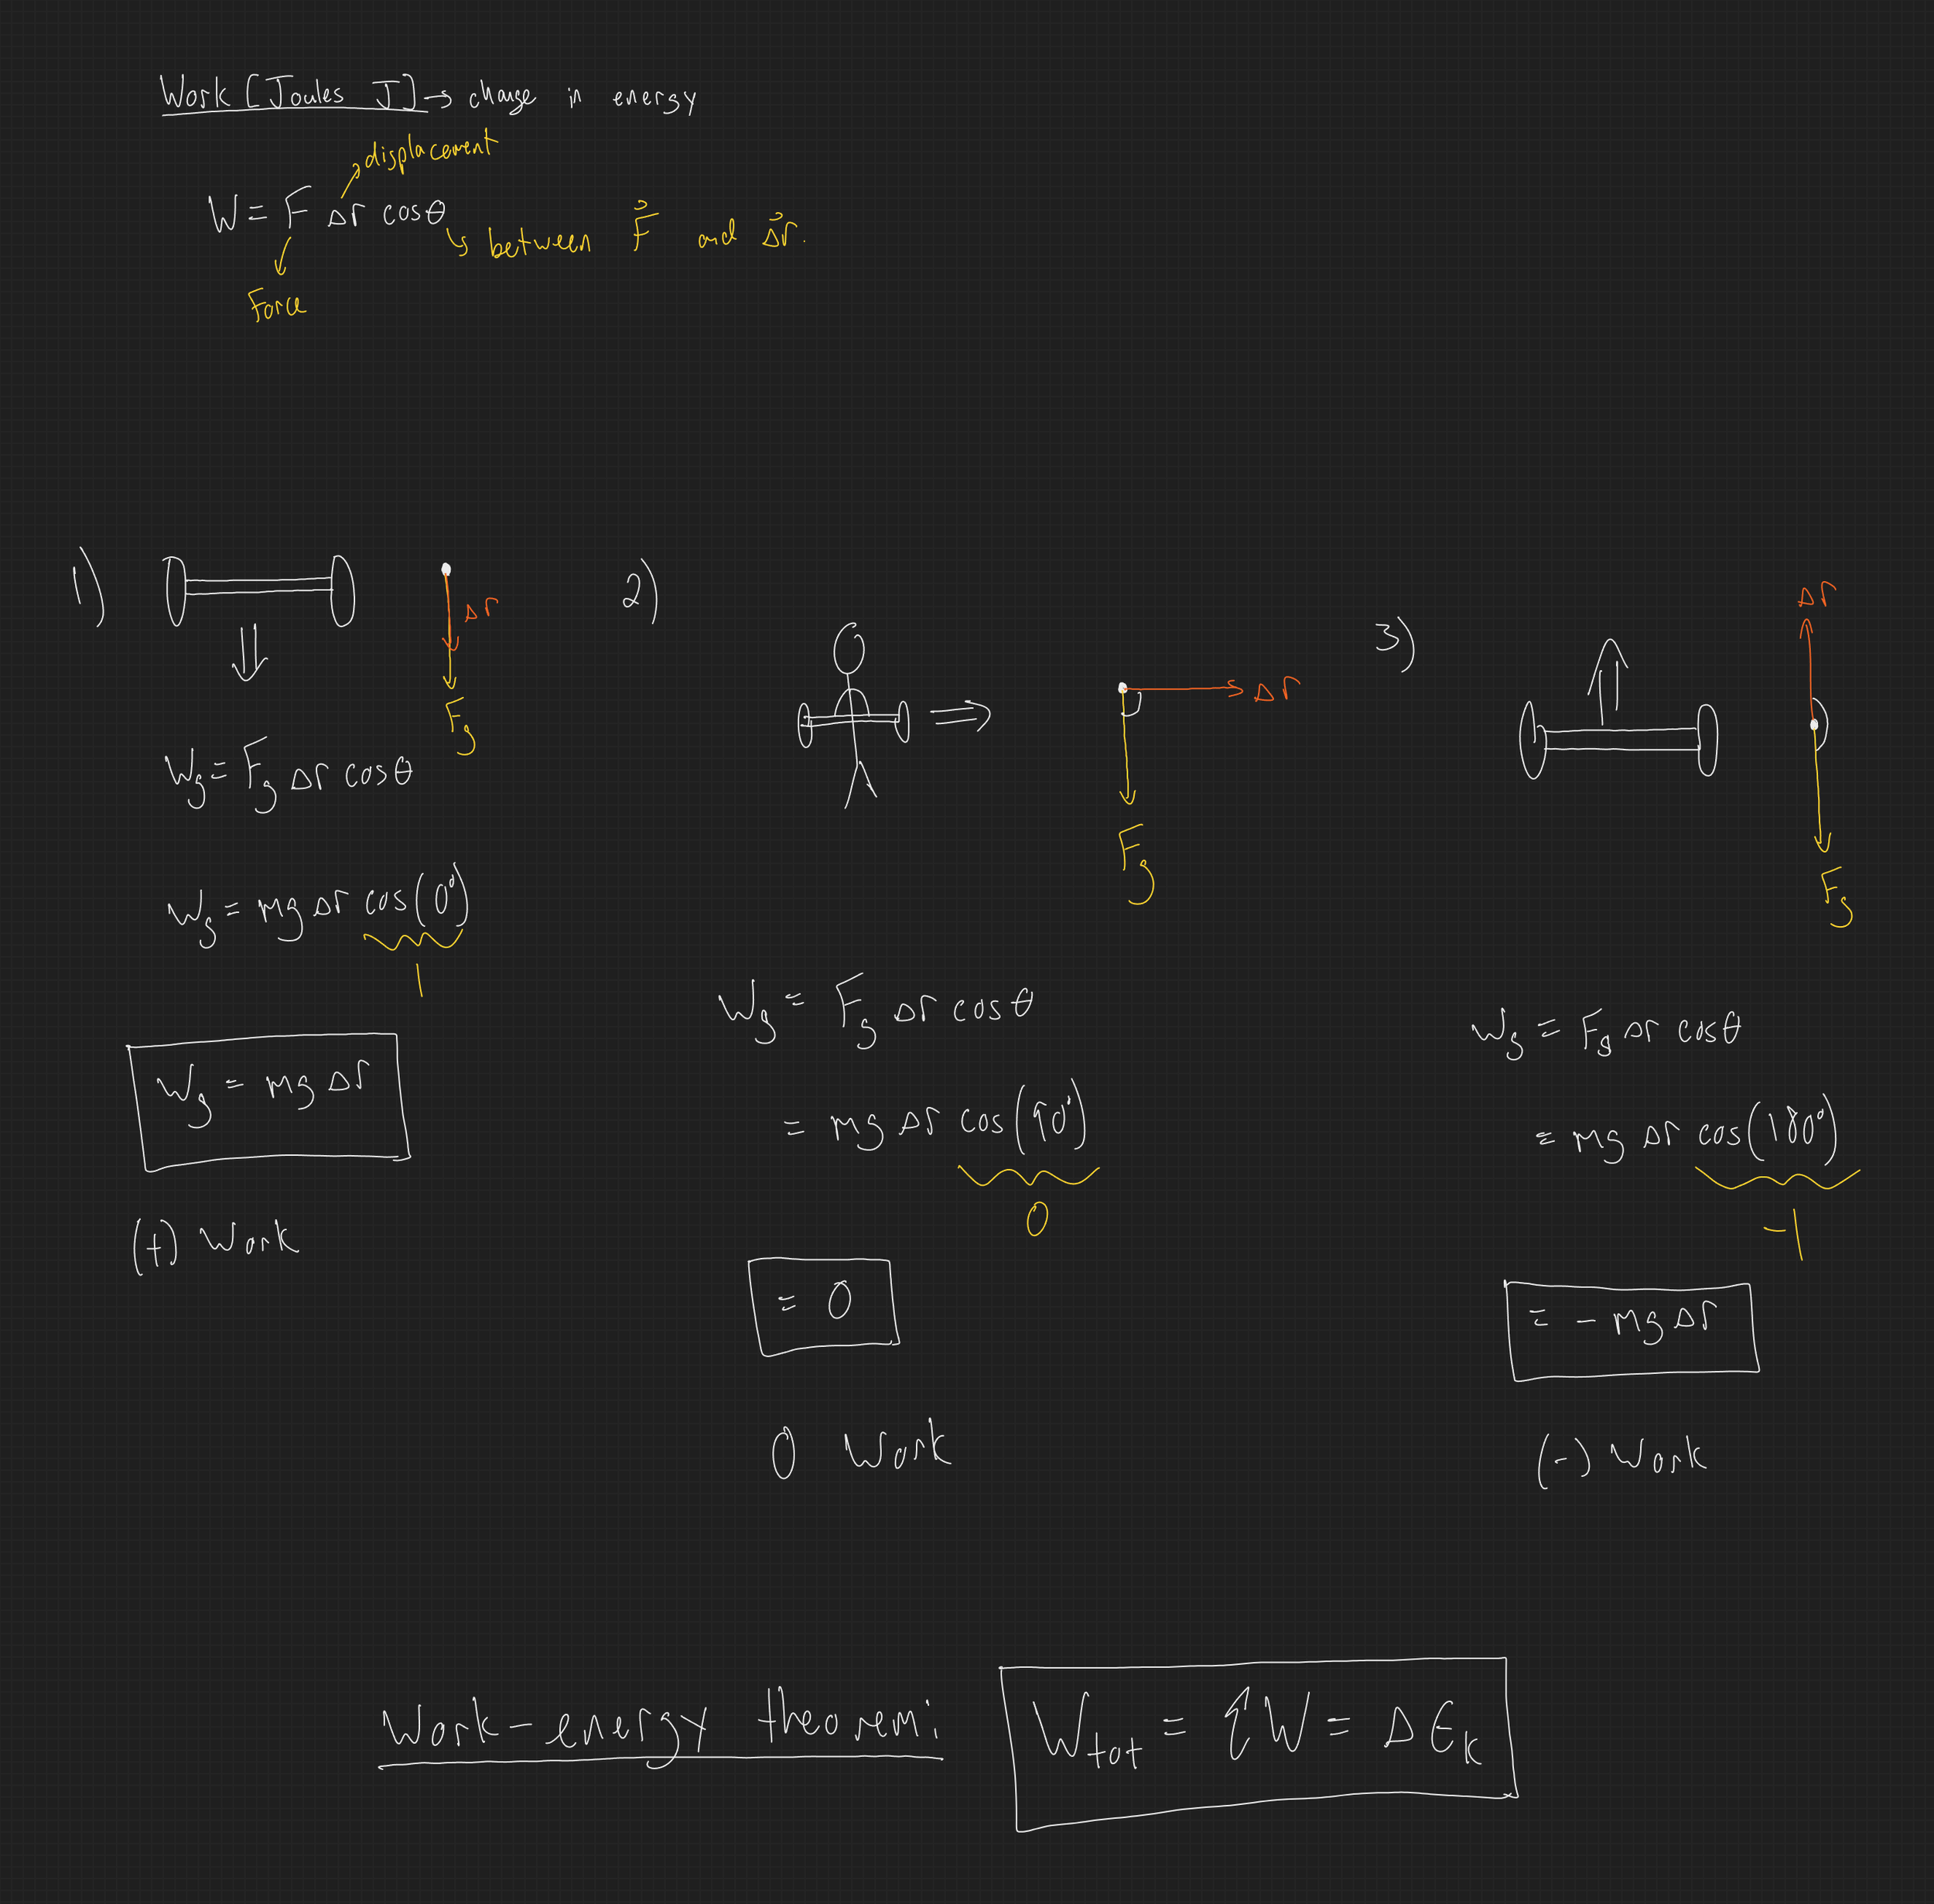 Work [Joules J] → change in energy
displacement
W = F Δr cosθ
between F⃗ and Δr⃗.
Force
1)
Δr
Fg
Wg = Fg Δr cosθ
Wg = mg Δr cos(0°)
1
Wg = mg Δr
(+) Work
2)
Δr
Fg
Wg = Fg Δr cosθ
= mg Δr cos(90°)
0
= 0
0 Work
3)
Δr
Fg
Wg = Fg Δr cosθ
= mg Δr cos(180°)
-1
= - mg Δr
(-) Work
Work-energy theorem:
Wtot = ΣW = ΔEk